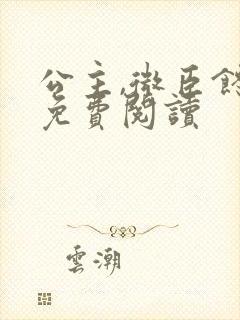 公主,微臣
免費閱讀
雲潮